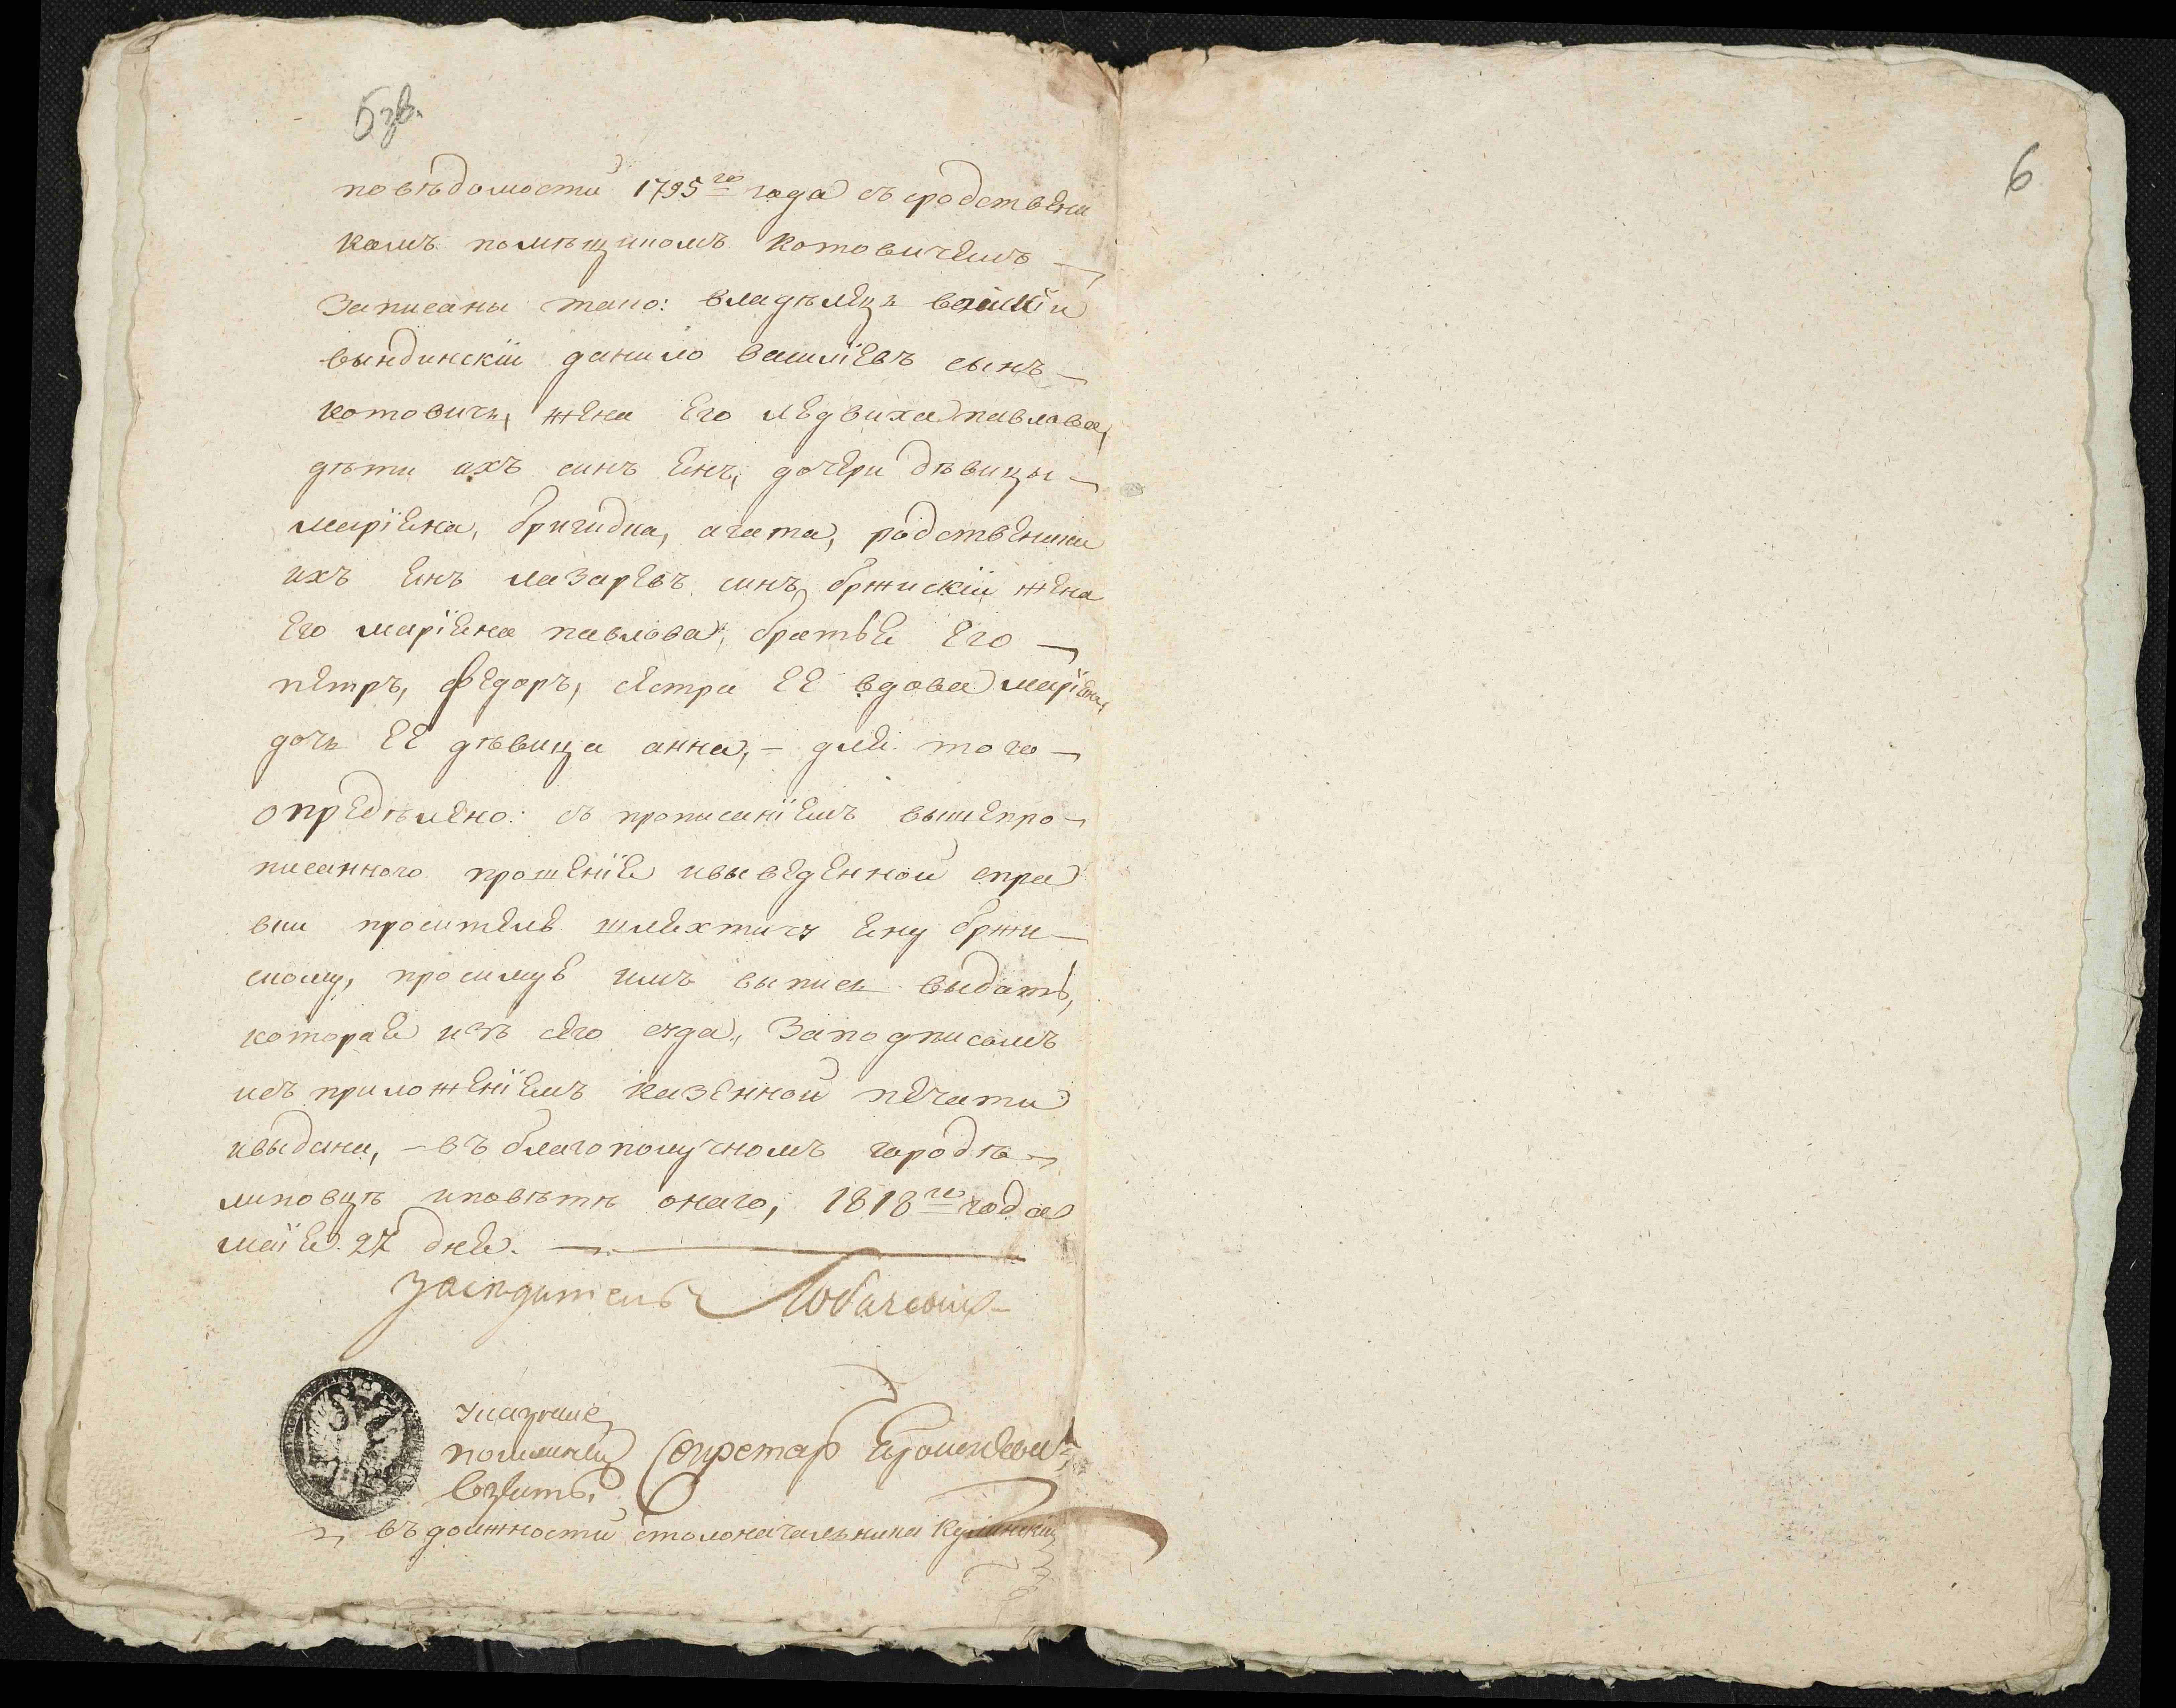 5 зв.
6
повѣдомости 1795го года съ сродствени
комъ помѣщикомъ котовичемъ
записаны тако: владѣлецъ
вындинскїи данило василїевъ сынъ
котовичъ, жена его ядвиха павлова,
дѣти ихъ синъ янъ, дочери дѣвицы
марїяна, бригидка, агата, родственики
ихъ янъ лазаревъ синъ бржискїи жена
его марїяна павлова, братья его
петръ, федоръ, сестра ее вдова марїяна,
дочь ее дѣвица анна, - для того
опредѣлено: съ прописанїемъ вышепро-
писанного прошенїя ивыведенной спра
вки просителю шляхтичу яну бржи-
скому, просимую имъ выпись выдать,
которая изъ сего суда, заподписомъ
исъ приложенїемъ казенной печати
ивыдана, - въ благополучномъ городѣ
липовцѣ иповѣтѣ онаго, 1818го года
маїя 27 дня.
засѣдатель
указные
пошлины
взяты.
Секретарь
въ должности столоначальника